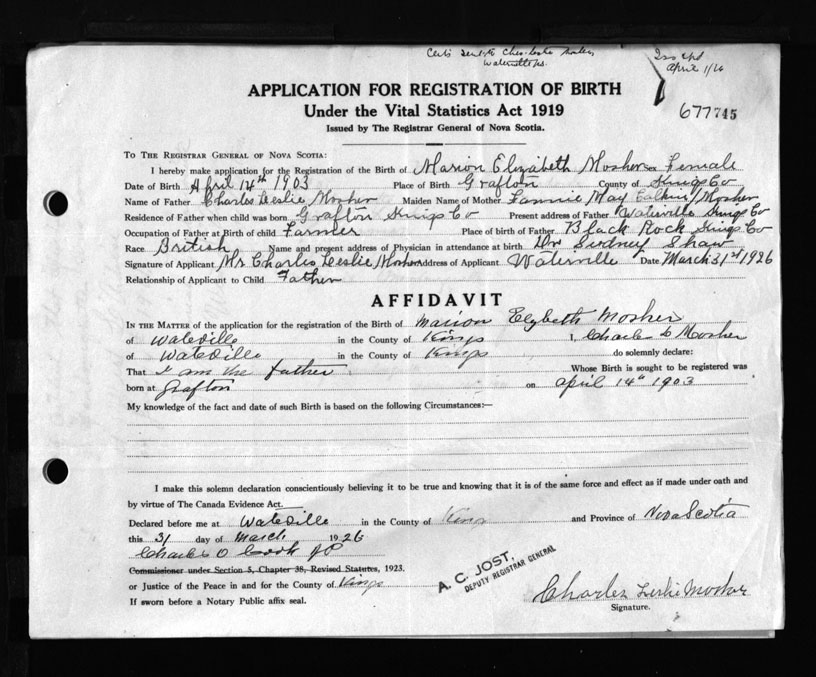 Certs sent to Chas. Leslie Mosher,
Waterville N.S.
April 1/26
677745
APPLICATION FOR REGISTRATION OF BIRTH
Under the Vital Statistics Act 1919
Issued by The Registrar General of Nova Scotia.
TO THE REGISTRAR GENERAL OF NOVA SCOTIA:
I hereby make application for the Registration of the Birth of Marion Elizabeth Mosher Female
Date of Birth April 14th 1903 Place of Birth Grafton County of Kings Co
Name of Father Charles Leslie Mosher Maiden Name of Mother Fannie May Calkins/Mosher
Residence of Father when child was born Grafton Kings Co Present address of Father Waterville Kings Co
Occupation of Father at Birth of child Farmer Place of birth of Father Black Rock Kings Co
Race British Name and present address of Physician in attendance at birth Dr Sidney Shaw
Signature of Applicant Mr Charles Leslie Mosher Address of Applicant Waterville Date March 31st 1926
Relationship of Applicant to Child Father
AFFIDAVIT
IN THE MATTER of the application for the registration of the Birth of Marion Elizbeth Mosher
of Waterville in the County of Kings I, Charles L Mosher
of Waterville in the County of Kings do solemnly declare:
That I am the father Whose Birth is sought to be registered was
born at Grafton on April 14th 1903
My knowledge of the fact and date of such Birth is based on the following Circumstances:—
I make this solemn declaration conscientiously believing it to be true and knowing that it is of the same force and effect as if made under oath and
by virtue of The Canada Evidence Act.
Declared before me at Waterville in the County of Kings and Province of Nova Scotia
this 31 day of March 1926
Charles O Cook JP
Commissioner under Section 5, Chapter 38, Revised Statutes, 1923.
or Justice of the Peace in and for the County of Kings
If sworn before a Notary Public affix seal.
A. C. JOST,
DEPUTY REGISTRAR GENERAL
Charles Leslie Mosher
Signature.